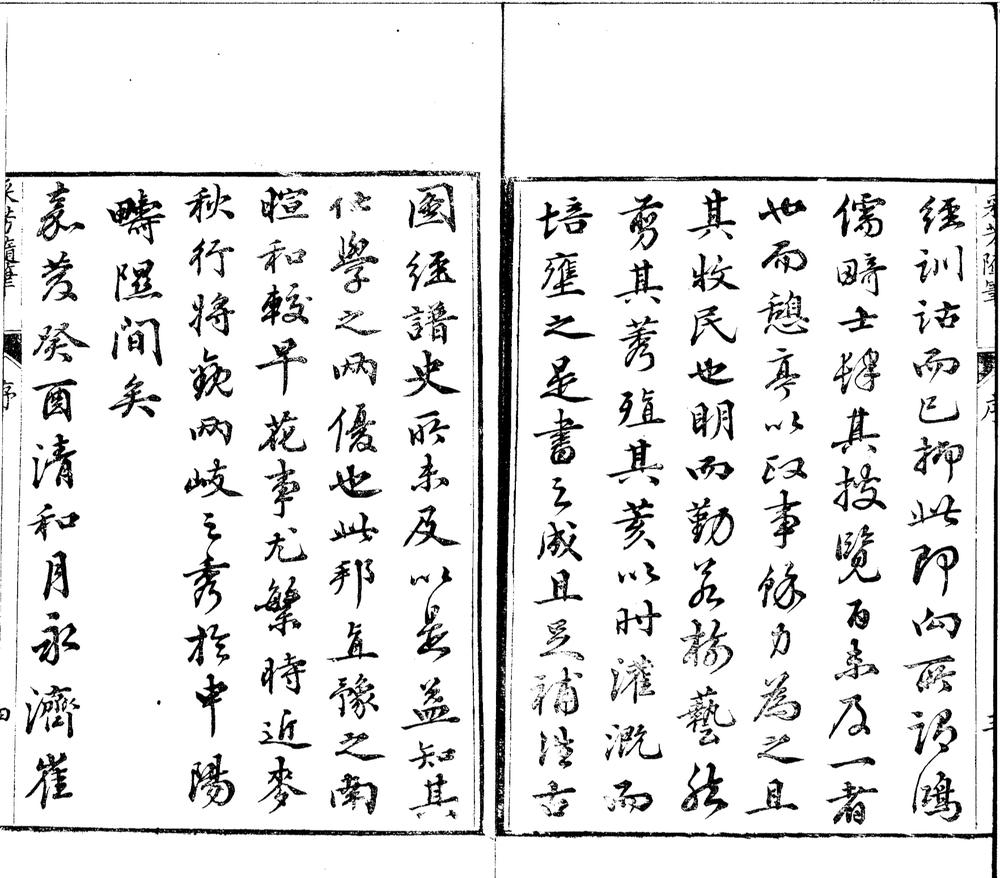 采芳隨筆
序
三
經訓詁而已抑此即向所謂鴻
儒畸士肆其披覽百未及一者
也而憩亭以政事餘力為之且
其牧民也明而勤若樹藝然
剪其莠殖其荑以时灌溉而
培壅之是書之成且足補往古
圖經譜史所未及以是益知其
仕學之兩優也此邦直豫之南
暄和較早花事尤繁時近麥
秋行將觀兩岐之秀於中陽
疇隰間矣
嘉慶癸酉清和月永濟崔
采芳隨筆
序
四